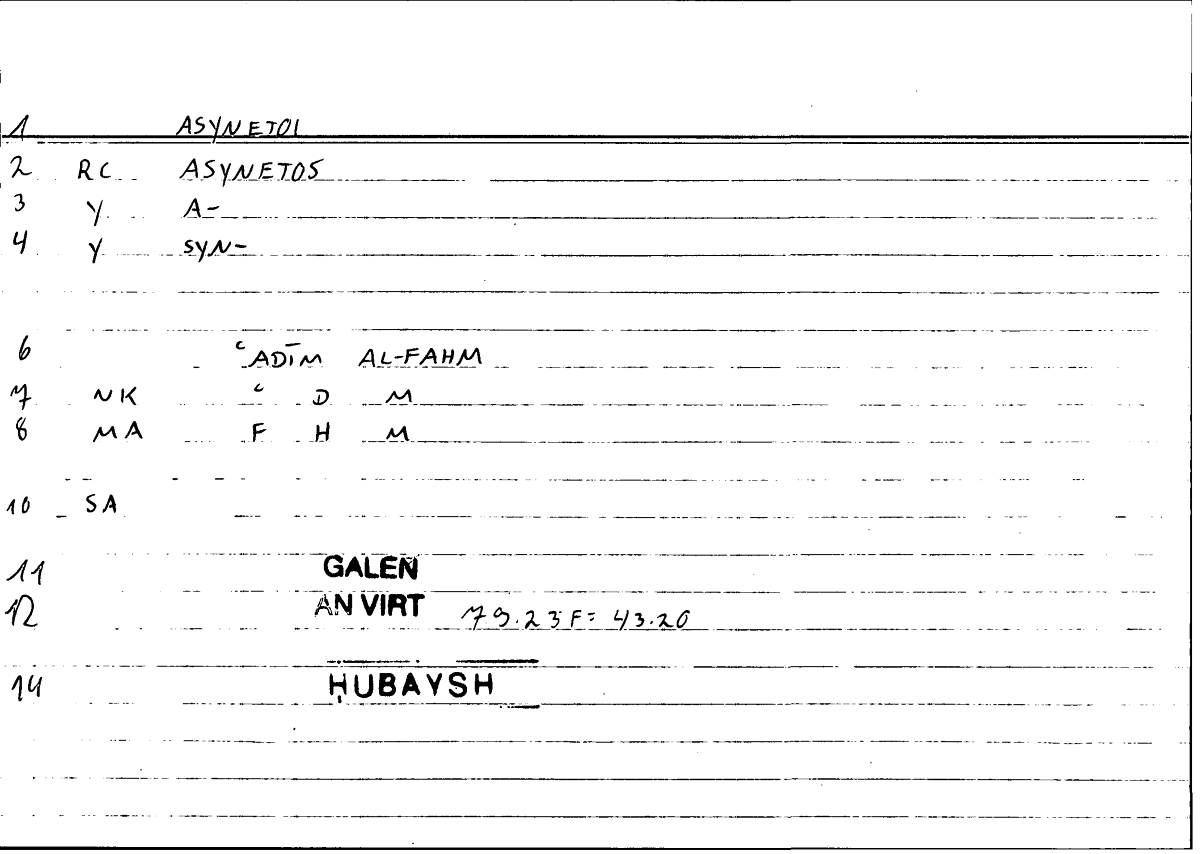 1 ASYNETOI
2 RC ASYNETOS
3 Y A-
4 Y SYN-
6 ʿADĪM AL-FAHM
7 NK ʿ D M
8 MA F H M
10 SA
11 GALEN
12 AN VIRT 79.23 F= 43.20
14 ḤUBAYSH